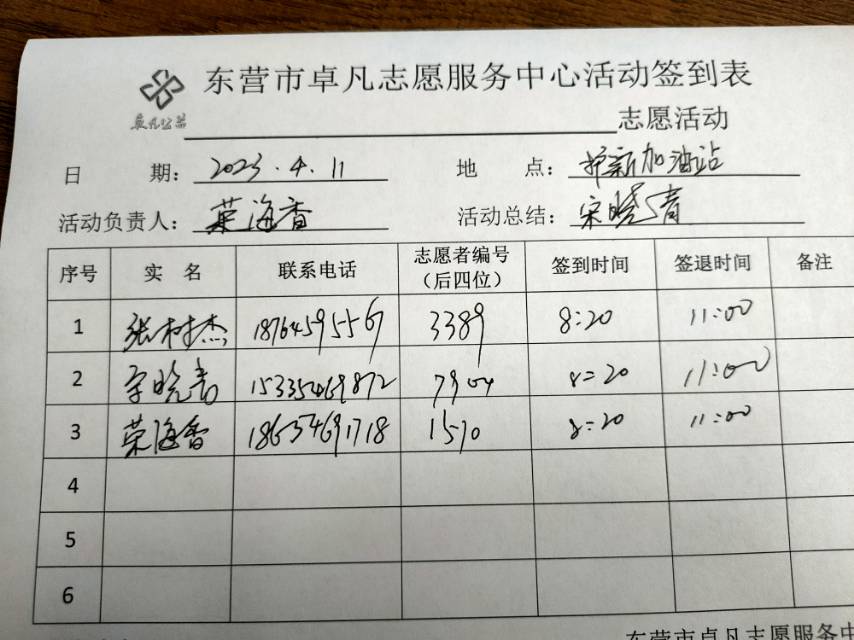 东营市卓凡志愿服务中心活动签到表
卓凡公益
志愿活动
日 期: 2023.4.11 地 点: 新加油站
活动负责人: 荣海香 活动总结: 宋晓青
序号 实 名 联系电话 志愿者编号（后四位） 签到时间 签退时间 备注
1 张树杰 18764595567 3389 8:20 11:00
2 宋晓青 15335469872 7904 8:20 11:00
3 荣海香 18654691718 1570 8:20 11:00
4
5
6
东营市卓凡志愿服务中